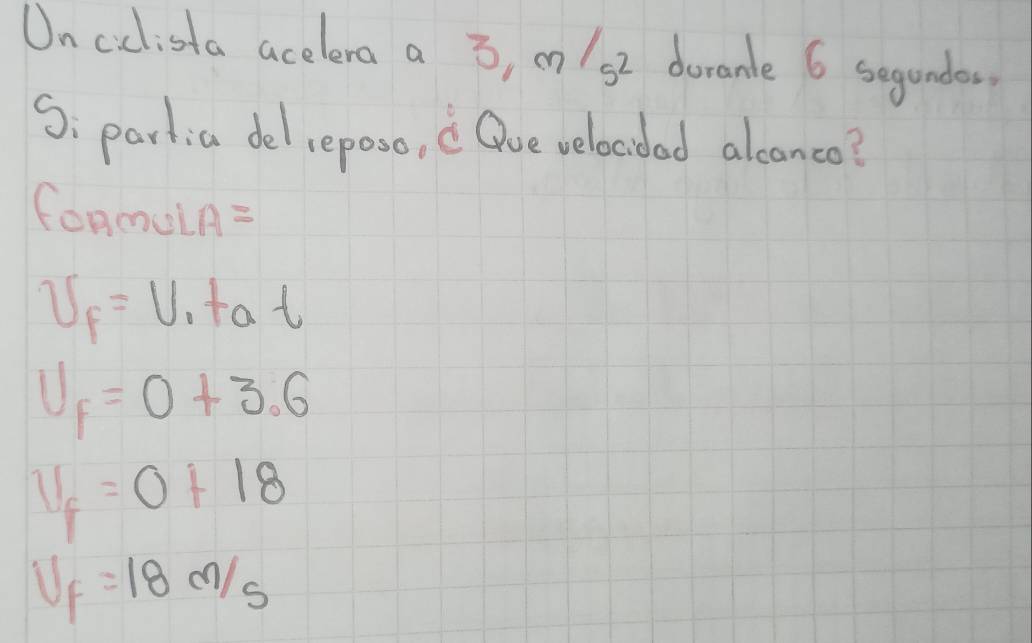 Un ciclista acelera a 3, m/s2 durante 6 segundos.
Si partia del reposo, ¿Que velocidad alcanzo?
FORMULA=
Vf = Vi + a t
Vf = 0 + 3.6
Vf = 0 + 18
Vf = 18 m/s